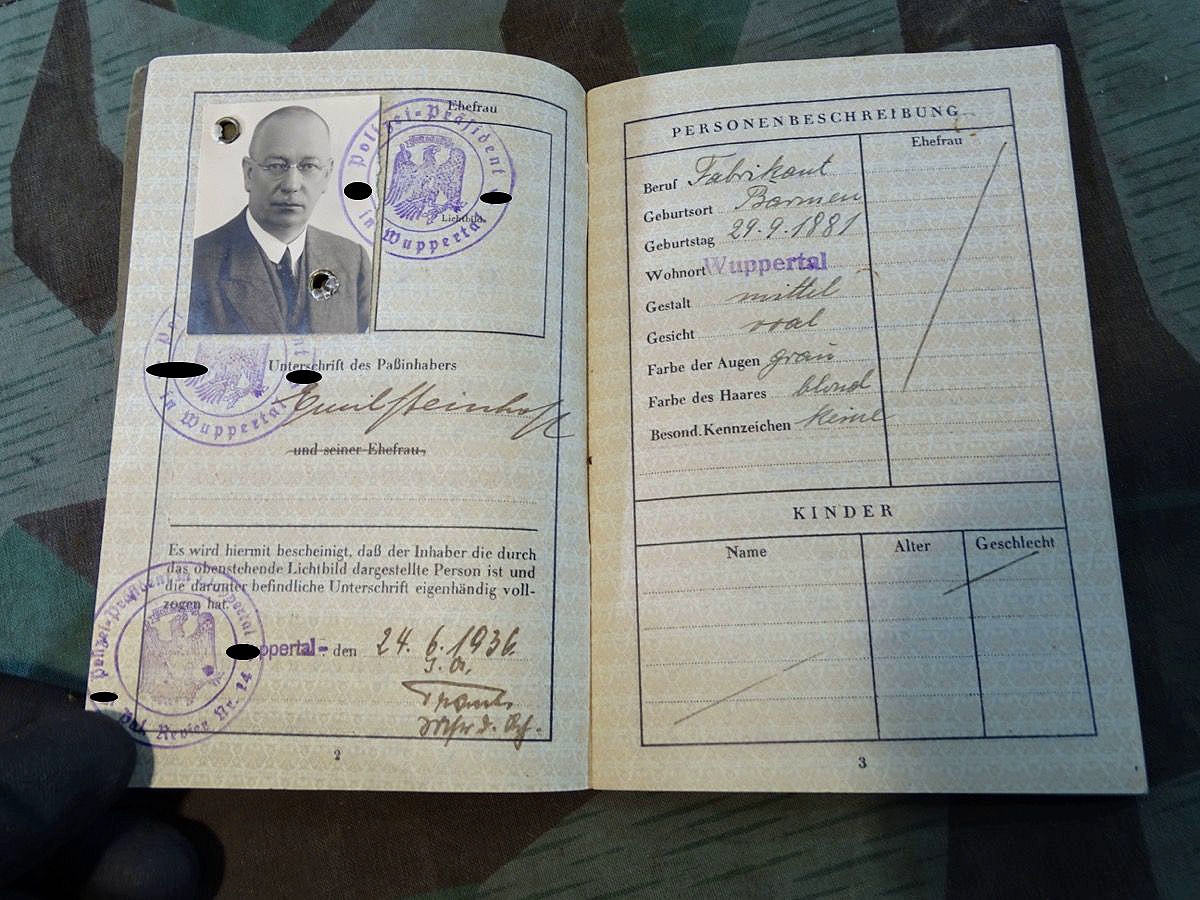 Ehefrau
Polizei-Präsident
in Wuppertal
Lichtbild
Unterschrift des Paßinhabers
in Wuppertal
Emil Steinhoff
und seiner Ehefrau
Es wird hiermit bescheinigt, daß der Inhaber die durch
das obenstehende Lichtbild dargestellte Person ist und
die darunter befindliche Unterschrift eigenhändig voll-
zogen hat.
ppertal- den 24. 6. 1936
Polizei-Präsident in Wuppertal
Pol. Revier Nr. 14
2
PERSONENBESCHREIBUNG
Ehefrau
Beruf Fabrikant
Geburtsort Barmen
Geburtstag 29.9.1881
Wohnort Wuppertal
Gestalt mittel
Gesicht oval
Farbe der Augen grau
Farbe des Haares blond
Besond. Kennzeichen keine
KINDER
Name Alter Geschlecht
3